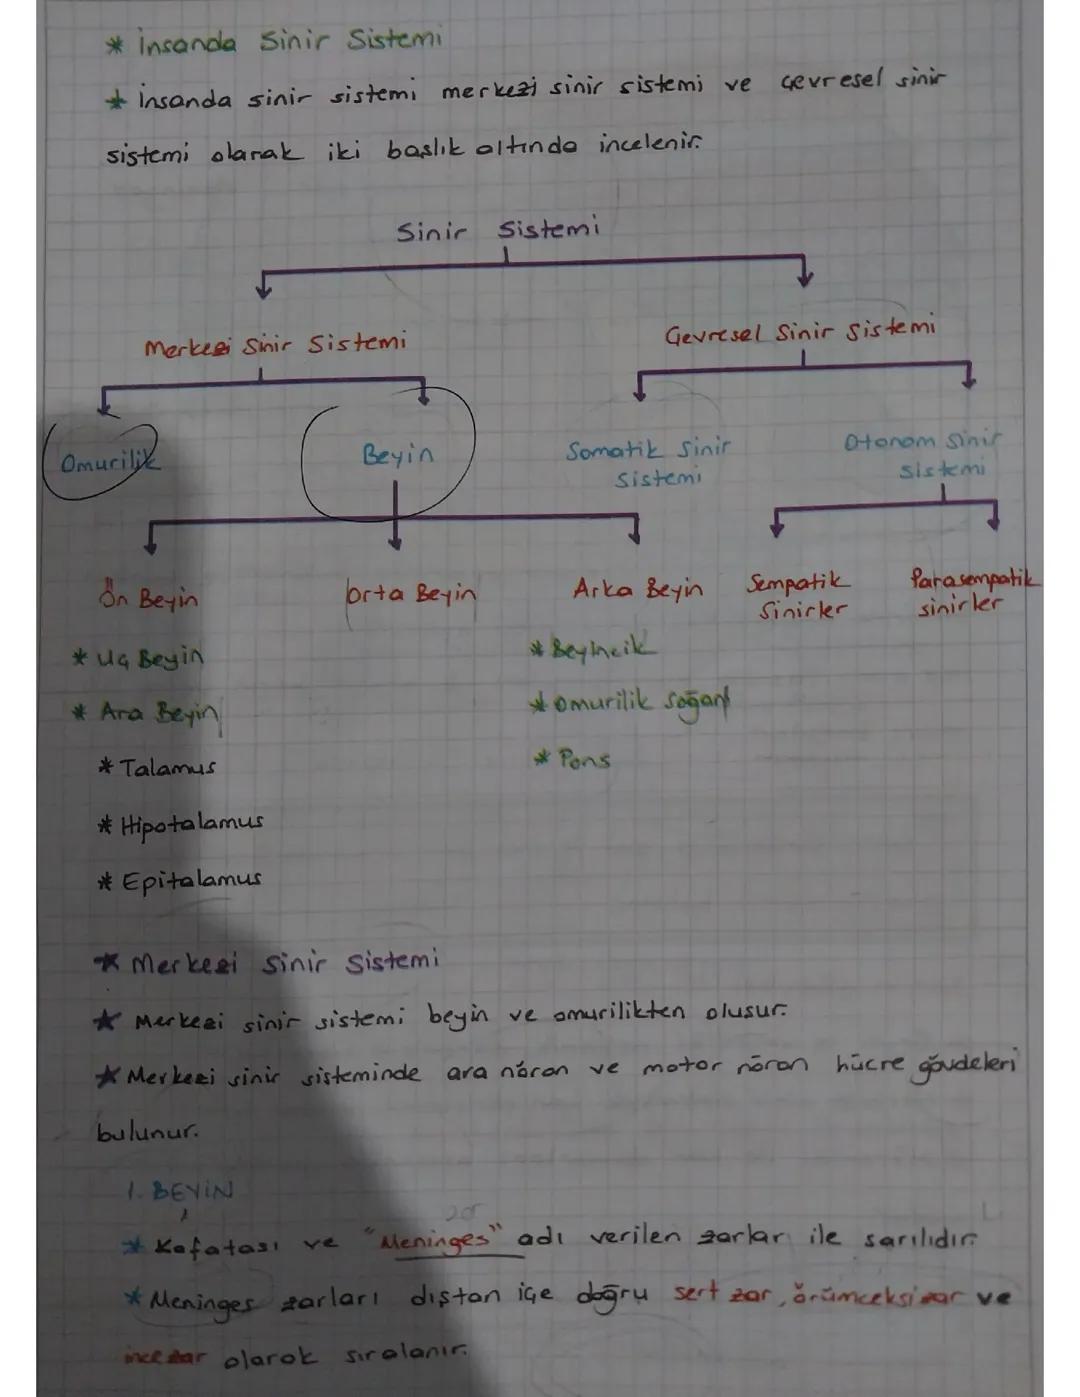 * İnsanda Sinir Sistemi
* İnsanda sinir sistemi merkezi sinir sistemi ve çevresel sinir
sistemi olarak iki başlık altında incelenir.
Sinir Sistemi
Merkezi Sinir Sistemi
Çevresel Sinir Sistemi
Omurilik
Beyin
Somatik Sinir
Sistemi
Otonom Sinir
Sistemi
Ön Beyin
Orta Beyin
Arka Beyin
Sempatik
Sinirler
Parasempatik
sinirler
* Uç Beyin
* Ara Beyin
* Talamus
* Hipotalamus
* Epitalamus
* Beyincik
* Omurilik Soğanı
* Pons
* Merkezi Sinir Sistemi
* Merkezi sinir sistemi beyin ve omurilikten oluşur.
* Merkezi sinir sisteminde ara nöron ve motor nöron hücre gövdeleri
bulunur.
1. BEYİN
zar
* Kafatası ve "Meninges" adı verilen zarlar ile sarılıdır.
* Meninges zarları dıştan içe doğru sert zar, örümceksi zar ve
ince zar olarak sıralanır.